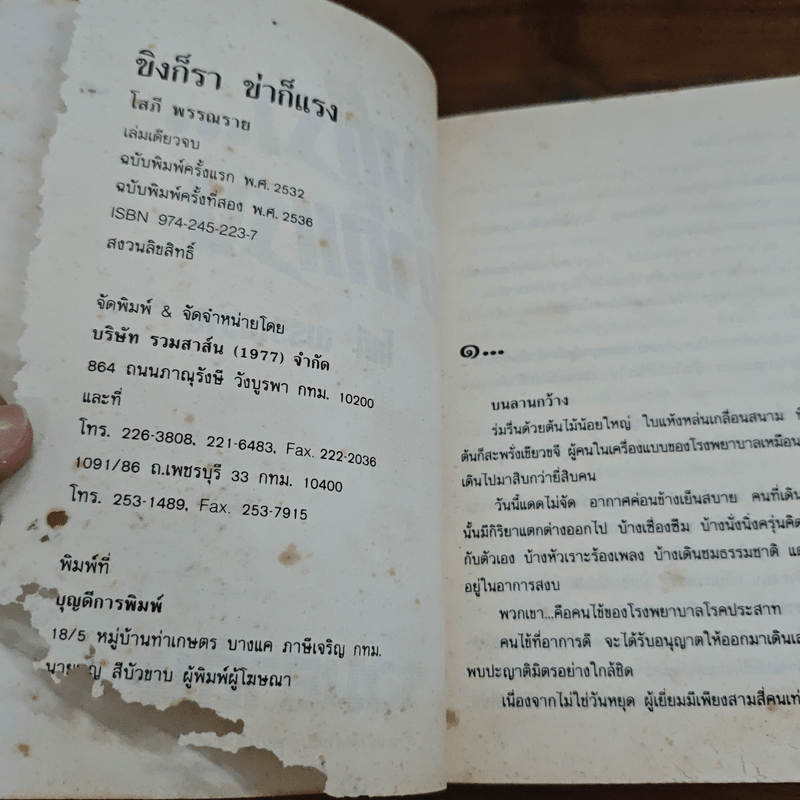 ขิงก็รา ข่าก็แรง
โสภี พรรณราย
เล่มเดียวจบ
ฉบับพิมพ์ครั้งแรก พ.ศ. 2532
ฉบับพิมพ์ครั้งที่สอง พ.ศ. 2536
ISBN 974-245-223-7
สงวนลิขสิทธิ์
จัดพิมพ์ & จัดจำหน่ายโดย
บริษัท รวมสาส์น (1977) จำกัด
864 ถนนภาณุรังษี วังบูรพา กทม. 10200
และที่
โทร. 226-3808, 221-6483, Fax. 222-2036
1091/86 ถ.เพชรบุรี 33 กทม. 10400
โทร. 253-1489, Fax. 253-7915
พิมพ์ที่
บุญดีการพิมพ์
18/5 หมู่บ้านท่าเกษตร บางแค ภาษีเจริญ กทม.
สีบัวขาบ ผู้พิมพ์ผู้โฆษณา
๑...
บนลานกว้าง
ร่มรื่นด้วยต้นไม้น้อยใหญ่ ใบแห้งหล่นเกลื่อนสนาม
ต้นก็สะพรั่งเขียวขจี ผู้คนในเครื่องแบบของโรงพยาบาลเหมือน
เดินไปมาสิบกว่ายี่สิบคน
วันนี้แดดไม่จัด อากาศค่อนข้างเย็นสบาย คนที่เดิน
นั้นมีกิริยาแตกต่างออกไป บ้างเซื่องซึม บ้างนั่งนิ่งครุ่นคิด
กับตัวเอง บ้างหัวเราะร้องเพลง บ้างเดินชมธรรมชาติ
อยู่ในอาการสงบ
พวกเขา...คือคนไข้ของโรงพยาบาลโรคประสาท
คนไข้ที่อาการดี จะได้รับอนุญาตให้ออกมาเดินเล
พบปะญาติมิตรอย่างใกล้ชิด
เนื่องจากไม่ใช่วันหยุด ผู้เยี่ยมมีเพียงสามสี่คนเท่